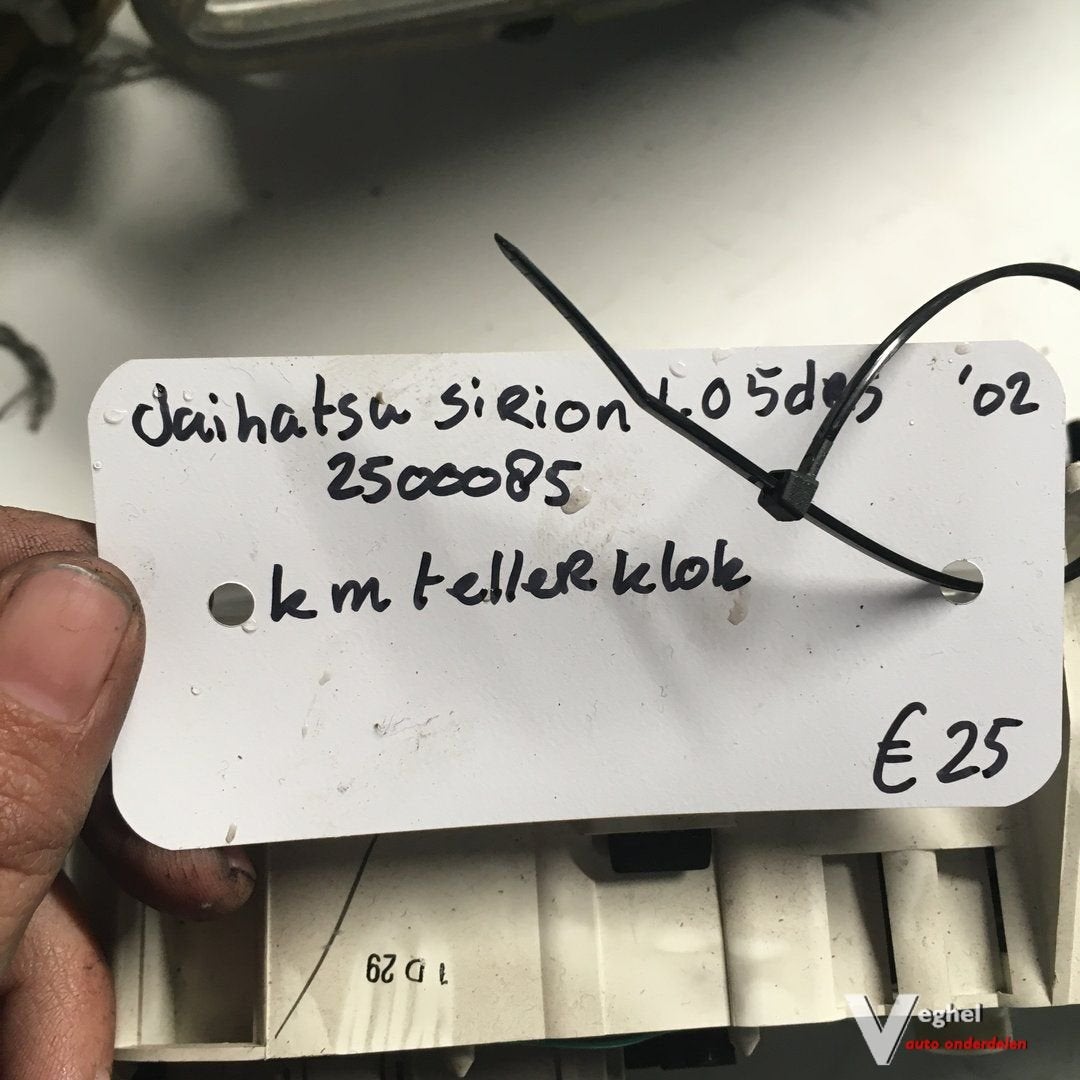 daihatsu siRion 1.0 5drs '02
2500085
km telleR klok
€ 25
1 D 29
Veghel
auto onderdelen